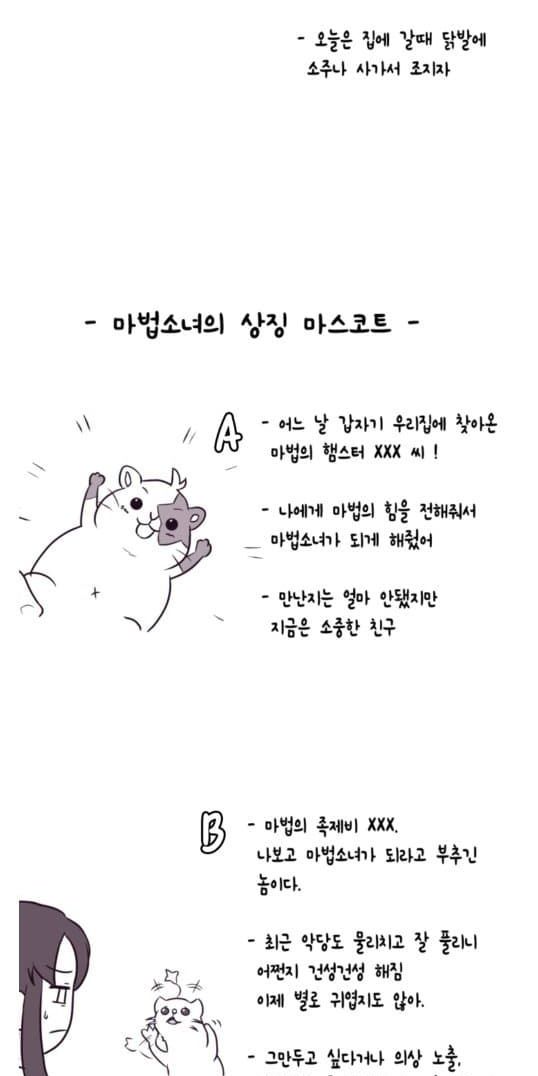 - 오늘은 집에 갈때 닭발에
소주나 사가서 조지자
- 마법소녀의 상징 마스코트 -
A
- 어느 날 갑자기 우리집에 찾아온
마법의 햄스터 XXX 씨 !
- 나에게 마법의 힘을 전해줘서
마법소녀가 되게 해줬어
- 만난지는 얼마 안됐지만
지금은 소중한 친구
B
- 마법의 족제비 XXX.
나보고 마법소녀가 되라고 부추긴
놈이다.
- 최근 악당도 물리치고 잘 풀리니
어쩐지 건성건성 해짐
이제 별로 귀엽지도 않아.
- 그만두고 싶다거나 의상 노출,